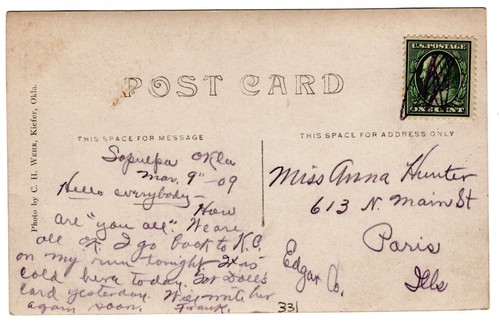 U.S. POSTAGE
ONE CENT
POST CARD
Photo by C. H. Wehr, Kiefer, Okla.
THIS SPACE FOR MESSAGE
Sapulpa Okla
Mar. 9"-09
Hello everybody-
How
are "you all" We are
all O.K. I go back to K.C.
on my run tonight It is
cold here today. Got Dolls
card yesterday. Will write her
again soon. Frank.
THIS SPACE FOR ADDRESS ONLY
Miss Anna Hunter
613 N. Main St
Paris
Edgar Co. Ills
331